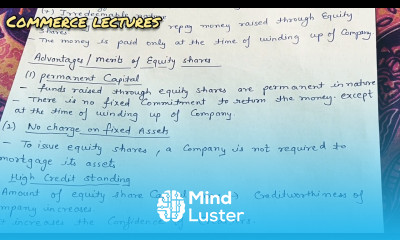 COMMERCE LECTURES
(+) Irredeemable
repay money raised through Equity
shares
- The money is paid only at the time of winding up of Company.
Advantages / merits of Equity shares
(1) permanent Capital
- funds raised through equity shares are permanent in nature
- There is no fixed Commitment to return the money except
at the time of winding up of Company.
(2) No charge on fixed Assets
- To issue equity shares, a Company is not required to
mortgage its assets
High Credit standing
Amount of equity share Creditworthiness of
mpany increases
increases the Confidence
Mind
Luster